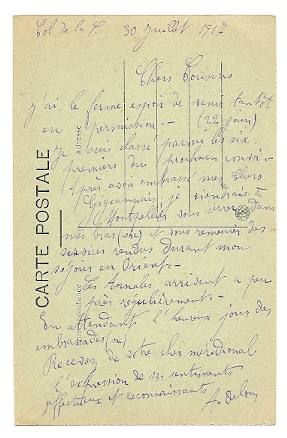 Col de la S... 30 Juillet 1917
Chers Cousins
j'ai le ferme espoir de venir tantôt
en permission. — (22 jours)
je suis classé parmi les six
premiers du prochain
Après avoir embrassé mes chers
Gigeannais, je viendrais à
Montpellier vous serrer dans
mes bras (sic) et vous remercier des
services rendus durant mon
séjour en Orient. —
Les Annales arrivent à peu
près régulièrement. —
En attendant l'heureux jour des
embrassades
Recevez de votre cher méridional
l'expression de ses sentiments
affectueux et reconnaissants
CARTE POSTALE
Adresse
Correspondance